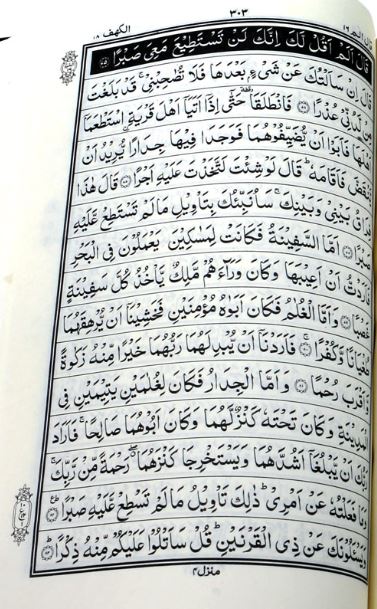 الكهف ١٨ ٣٠٣ قال الم ١٦
قَالَ اَلَمْ اَقُلْ لَّكَ اِنَّكَ لَنْ تَسْتَطِيْعَ مَعِيَ صَبْرًا ﴿٧٥﴾
قَالَ اِنْ سَاَلْتُكَ عَنْ شَيْءٍۭ بَعْدَهَا فَلَا تُصٰحِبْنِيْ ۚ قَدْ بَلَغْتَ
مِنْ لَّدُنِّيْ عُذْرًا ﴿٧٦﴾ فَانْطَلَقَا ۥ حَتّٰۤى اِذَاۤ اَتَيَاۤ اَهْلَ قَرْيَةِ ࣙاسْتَطْعَمَاۤ
اَهْلَهَا فَاَبَوْا اَنْ يُّضَيِّفُوْهُمَا فَوَجَدَا فِيْهَا جِدَارًا يُّرِيْدُ اَنْ
يَّنْقَضَّ فَاَقَامَهٗ ؕ قَالَ لَوْ شِئْتَ لَتَّخَذْتَ عَلَيْهِ اَجْرًا ﴿٧٧﴾ قَالَ هٰذَا
فِرَاقُ بَيْنِيْ وَبَيْنِكَ ۚ سَاُنَبِّئُكَ بِتَاْوِيْلِ مَا لَمْ تَسْتَطِعْ عَّلَيْهِ
صَبْرًا ﴿٧٨﴾ اَمَّا السَّفِيْنَةُ فَكَانَتْ لِمَسٰكِيْنَ يَعْمَلُوْنَ فِي الْبَحْرِ
فَاَرَدْتُّ اَنْ اَعِيْبَهَا وَكَانَ وَرَآءَهُمْ مَّلِكٌ يَّاْخُذُ كُلَّ سَفِيْنَةٍ
غَصْبًا ﴿٧٩﴾ وَاَمَّا الْغُلٰمُ فَكَانَ اَبَوٰهُ مُؤْمِنَيْنِ فَخَشِيْنَاۤ اَنْ يُّرْهِقَهُمَا
طُغْيَانًا وَّكُفْرًا ﴿٨٠﴾ فَاَرَدْنَاۤ اَنْ يُّبْدِلَهُمَا رَبُّهُمَا خَيْرًا مِّنْهُ زَكٰوةً
وَّاَقْرَبَ رُحْمًا ﴿٨١﴾ وَاَمَّا الْجِدَارُ فَكَانَ لِغُلٰمَيْنِ يَتِيْمَيْنِ فِي
الْمَدِيْنَةِ وَكَانَ تَحْتَهٗ كَنْزٌ لَّهُمَا وَكَانَ اَبُوْهُمَا صَالِحًا ۚ فَاَرَادَ
رَبُّكَ اَنْ يَّبْلُغَاۤ اَشُدَّهُمَا وَيَسْتَخْرِجَا كَنْزَهُمَا ۖ رَحْمَةً مِّنْ رَّبِّكَ ۚ
وَمَا فَعَلْتُهٗ عَنْ اَمْرِيْ ؕ ذٰلِكَ تَاْوِيْلُ مَا لَمْ تَسْطِعْ عَّلَيْهِ صَبْرًا ﴿٨٢﴾
وَيَسْـَٔلُوْنَكَ عَنْ ذِي الْقَرْنَيْنِ ؕ قُلْ سَاَتْلُوْا عَلَيْكُمْ مِّنْهُ ذِكْرًا ﴿٨٣﴾
منزل ٤